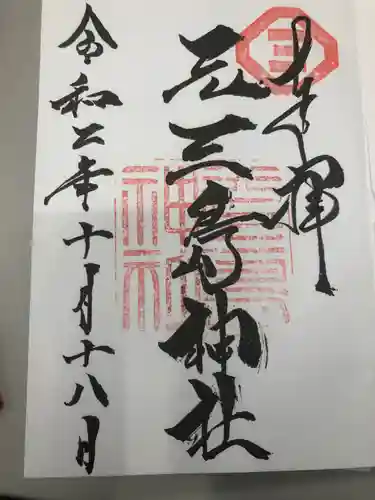 奉拝
元三島神社
令和二年十月十八日